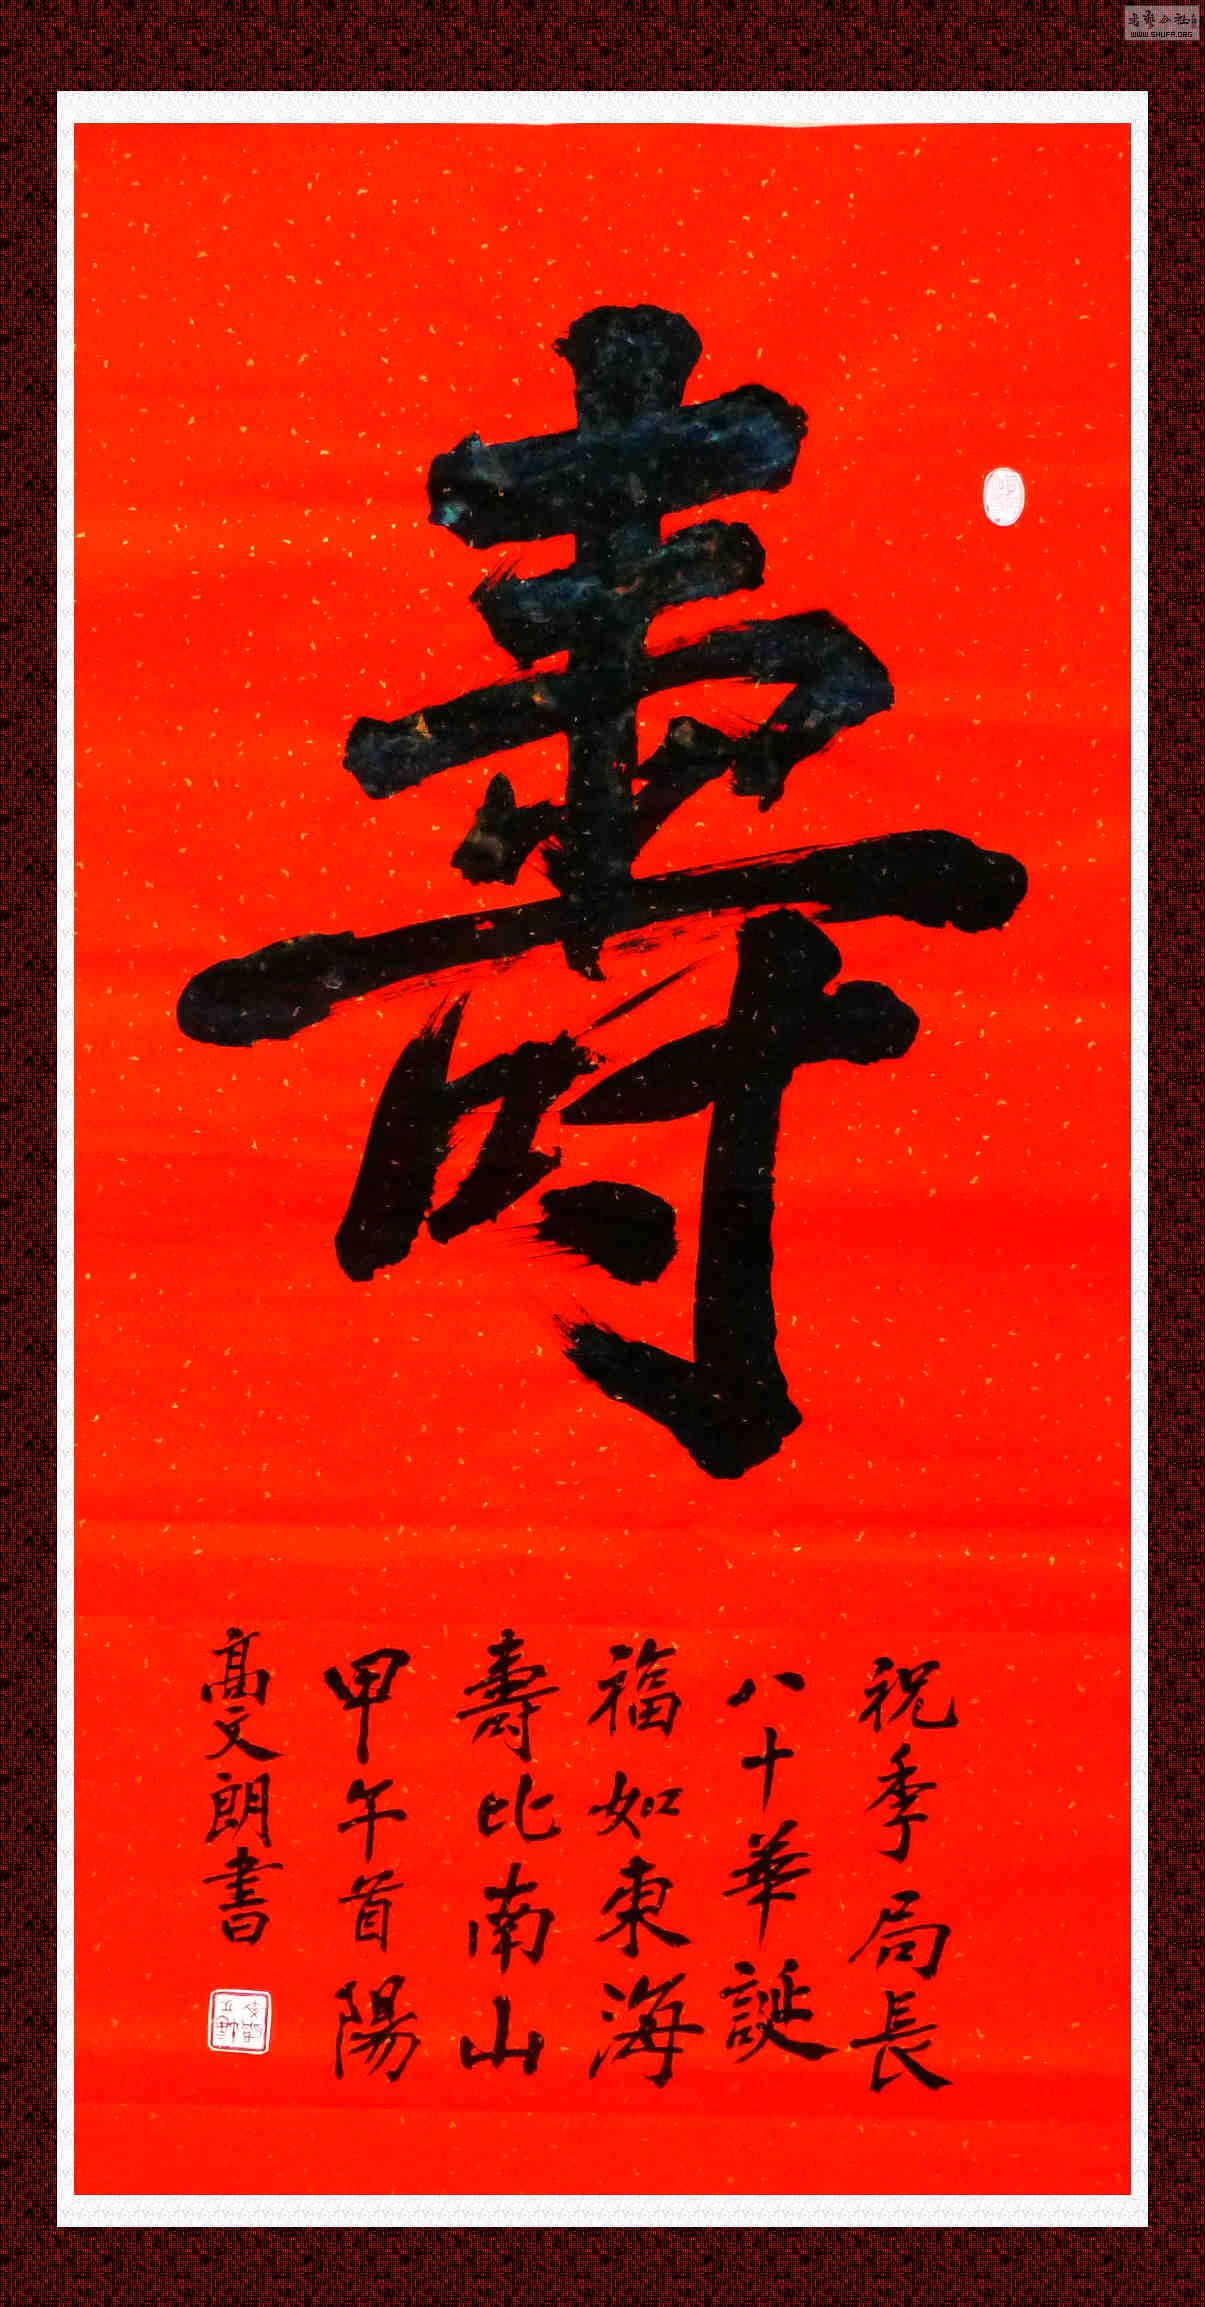 壽
祝季局長
八十華誕
福如東海
壽比南山
甲午首陽
高文朗書
WWW.SHUFA.ORG